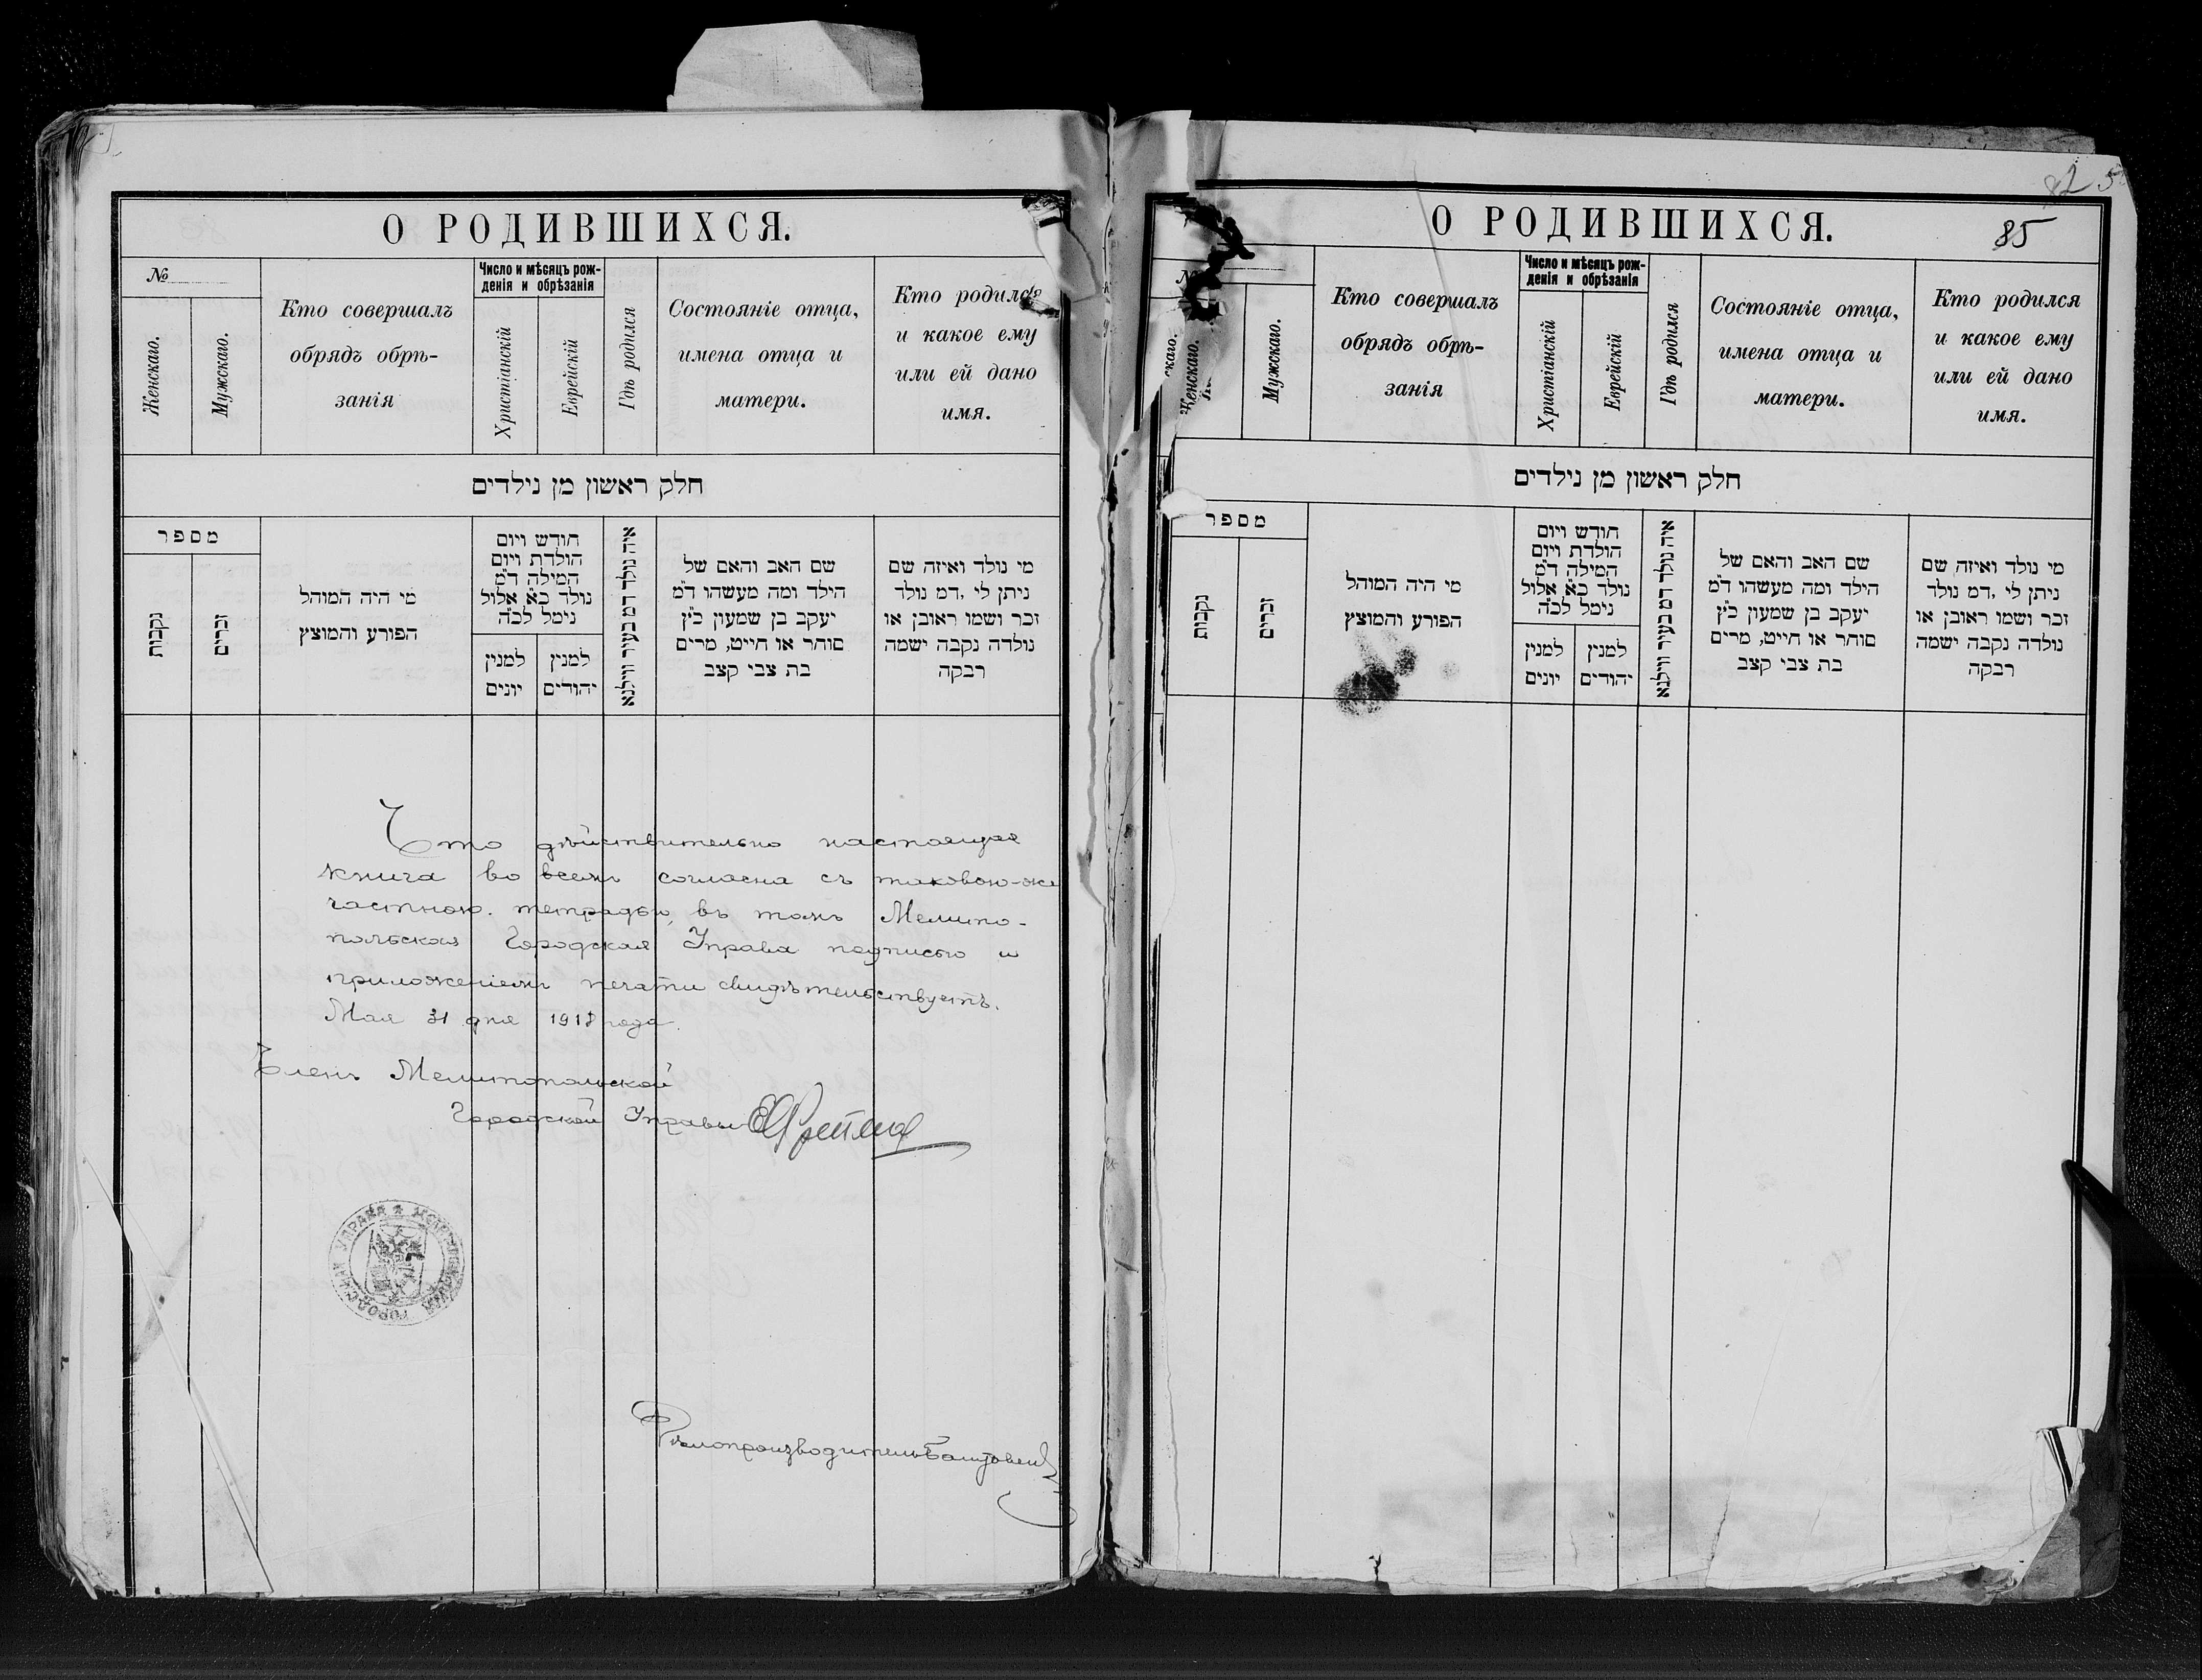 О РОДИВШИХСЯ.
№
Женскаго.
Мужскаго.
Кто совершалъ
обрядъ обрѣ-
занія
Число и мѣсяцъ рож-
денія и обрѣзанія
Христіанскій
Еврейскій
Гдѣ родился
Состояніе отца,
имена отца и
матери.
Кто родился
и какое ему
или ей дано
имя.
חלק ראשון מן נילדים
מספר
נקבות
זכרים
מי היה המוהל
הפורע והמוצץ
חודש ויום
הולדת ויום
המילה ד״מ
נולד כ״א אלול
נימל לכ״ה
למנין
יונים
למנין
יהודים
איה נולד דמ בעיר ווילנא
שם האב והאם של
הילד ומה מעשהו ד״מ
יעקב בן שמעון כ״ץ
סוחר או חייט, מרים
בת צבי קצב
מי נולד ואיזה שם
ניתן לי, דמ נולד
זכר ושמו ראובן או
נולדה נקבה ישמה
רבקה
Что дѣйствительно настоящая
книга во всемъ согласна съ таковою-же
частною тетрадью, въ томъ Мелито-
польская Городская Управа подписью и
приложеніемъ печати свидѣтельствуетъ.
Мая 31 дня 1918 года.
Членъ Мелитопольской
Городской Управы
МЕЛИТОПОЛЬСКАЯ ГОРОДСКАЯ УПРАВА
Дѣлопроизводитель
О РОДИВШИХСЯ.
85
№
Женскаго.
Мужскаго.
Кто совершалъ
обрядъ обрѣ-
занія
Число и мѣсяцъ рож-
денія и обрѣзанія
Христіанскій
Еврейскій
Гдѣ родился
Состояніе отца,
имена отца и
матери.
Кто родился
и какое ему
или ей дано
имя.
חלק ראשון מן נילדים
מספר
נקבות
זכרים
מי היה המוהל
הפורע והמוצץ
חודש ויום
הולדת ויום
המילה ד״מ
נולד כ״א אלול
נימל לכ״ה
למנין
יונים
למנין
יהודים
איה נולד דמ בעיר ווילנא
שם האב והאם של
הילד ומה מעשהו ד״מ
יעקב בן שמעון כ״ץ
סוחר או חייט, מרים
בת צבי קצב
מי נולד ואיזה שם
ניתן לי, דמ נולד
זכר ושמו ראובן או
נולדה נקבה ישמה
רבקה